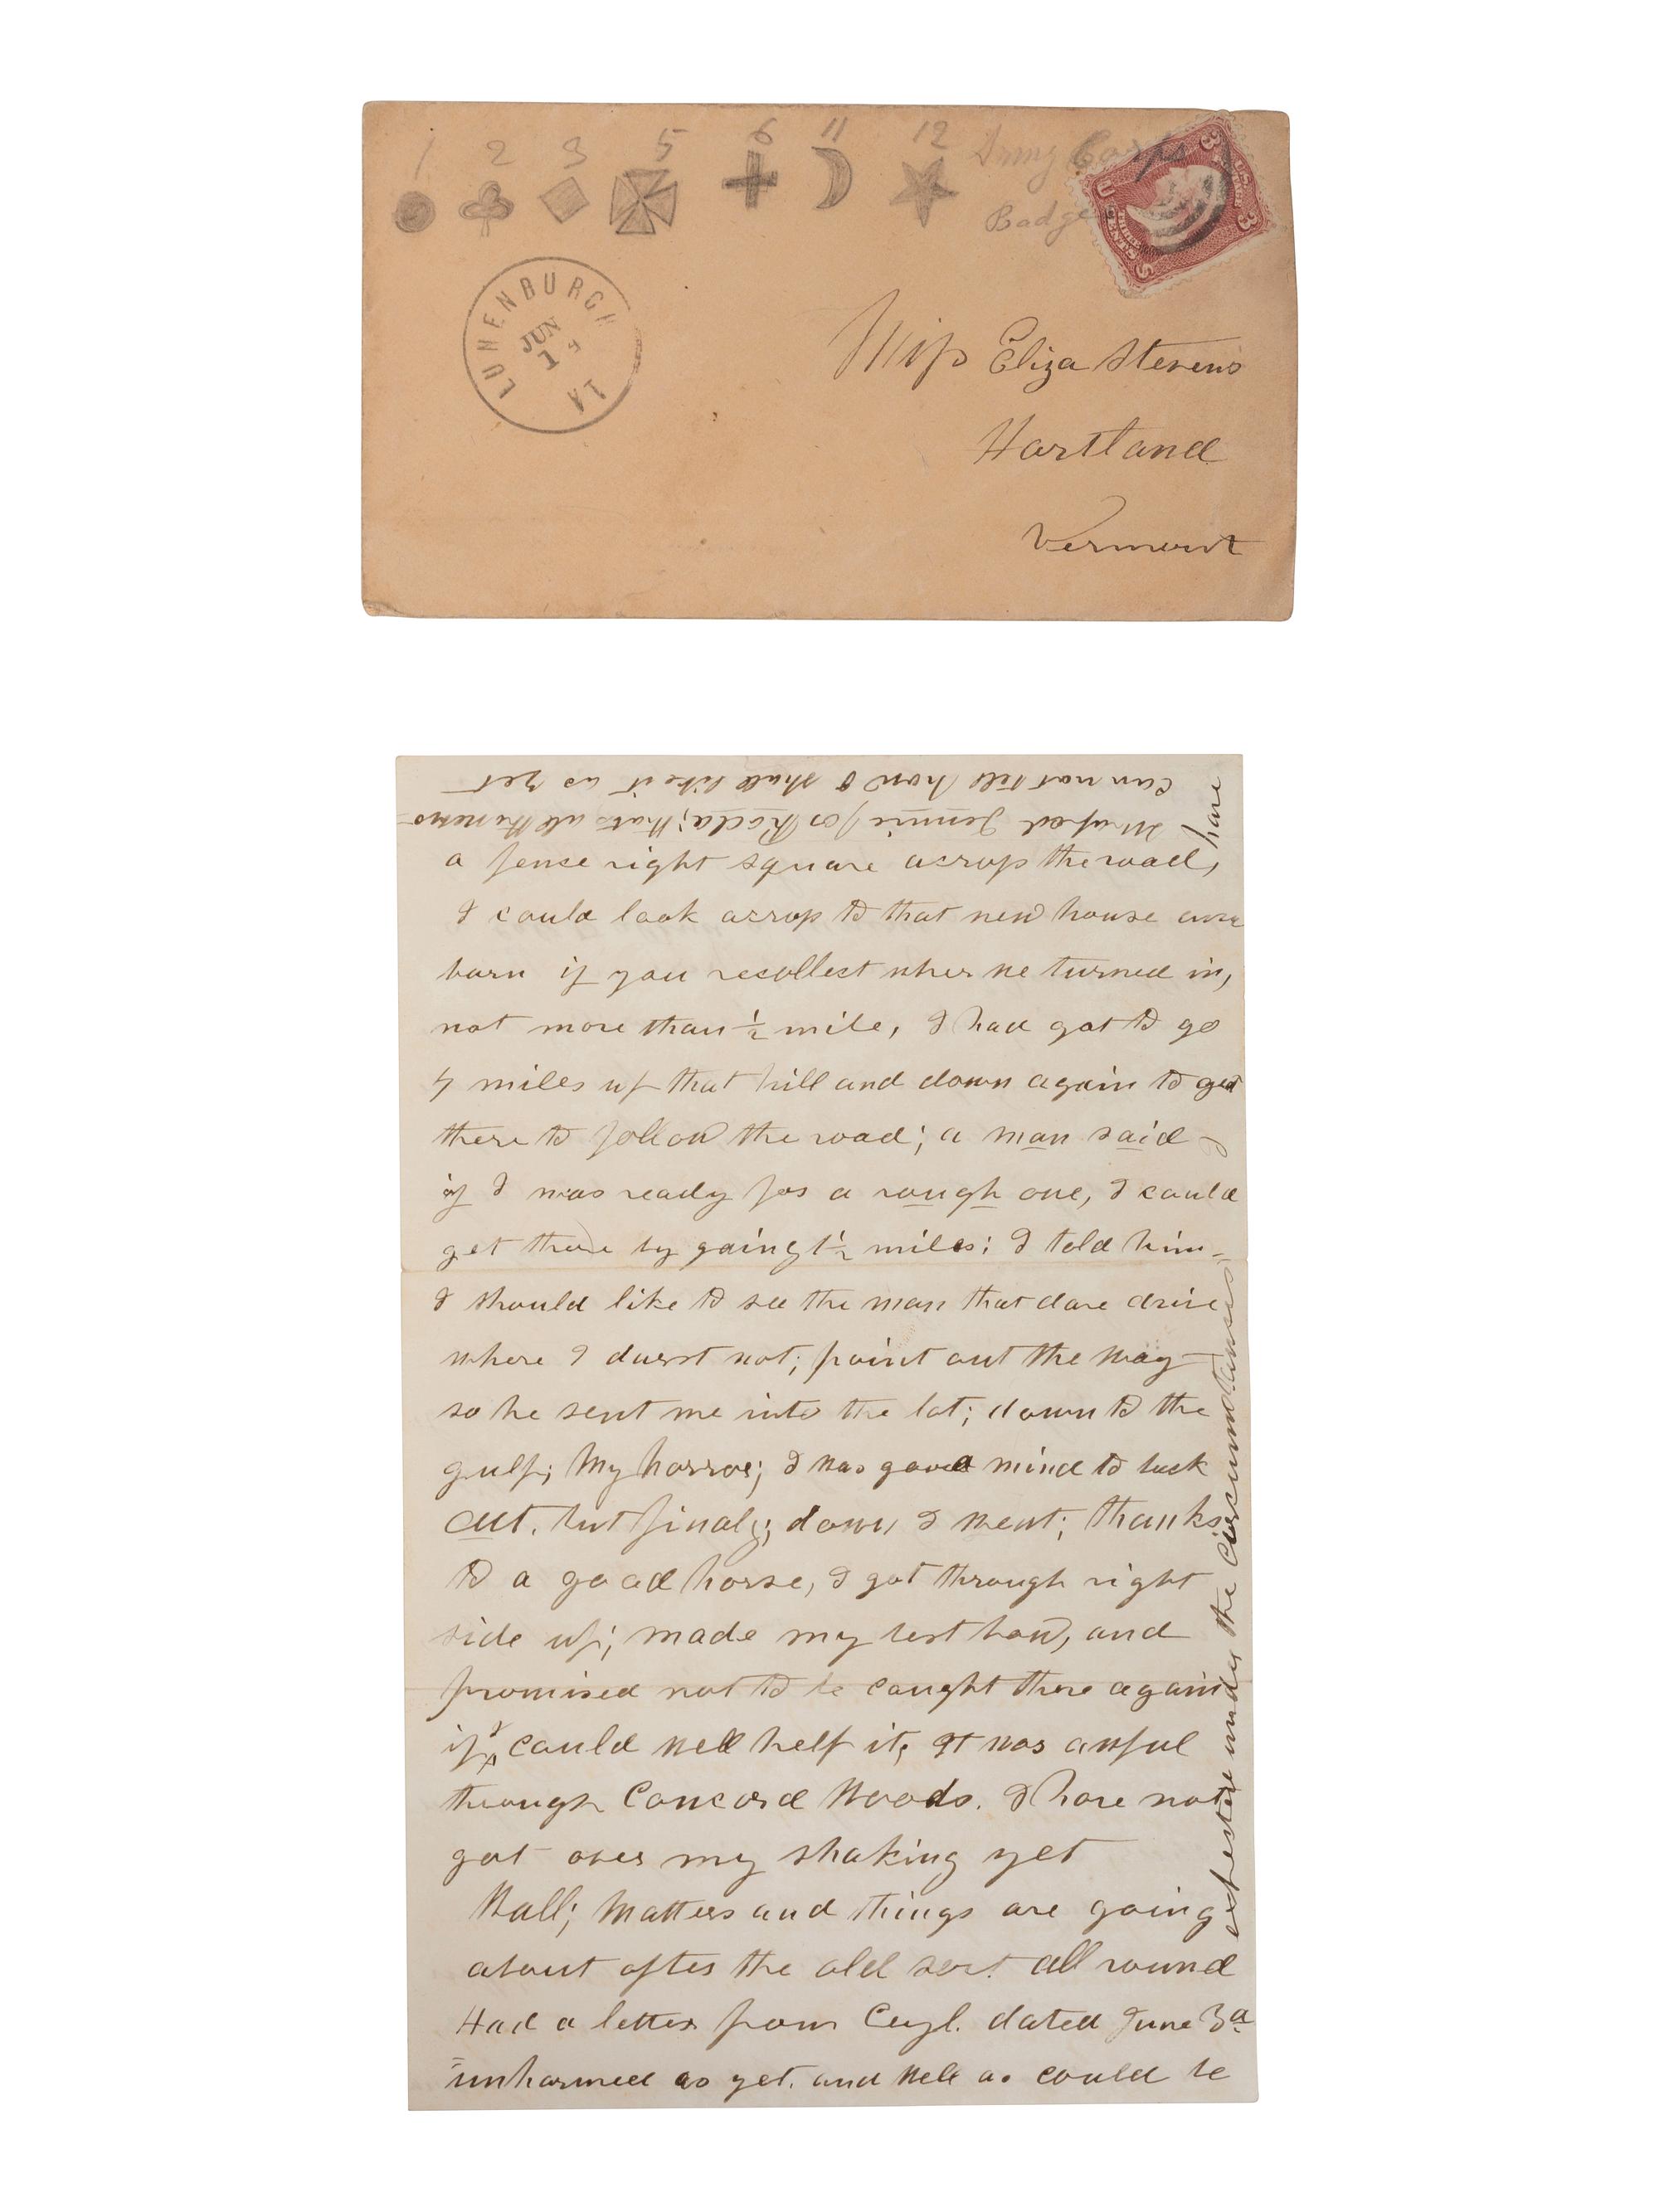 1 2 3 5 6 11 12 Army Corps
Badge
U.S. POSTAGE
3 3
THREE CENTS
U S
LUNENBURGH
JUN
1
Miss Eliza Stevens
Hartland
Vermont
have
swaped Jennie for Rocla; that's all the news
can not tell how I shall like it as yet
a fense right square across the road,
I could look across to that new house and
barn if you recollect wher we turned in,
not more than ½ mile, I had got to go
4 miles up that hill and down again to get
there to follow the road; a man said
if I was ready for a rough one, I could
get there by going 1½ miles; I told him
I should like to see the man that dare drive
where I durst not; point out the way
so he sent me into the lot; down to the
gulf; My horror; I was good mind to back
out. but finaly; down I went; thanks
to a good horse, I got through right
side up; made my best bow, and
promised not to be caught there again
if I could well help it; It was awful
through Concord Woods. I have not
got over my shaking yet
Wall; Matters and things are going
about after the old sort all round
Had a letter from Cuyl. dated June 3d
unharmed as yet. and well as could be
expected under the Circumstances